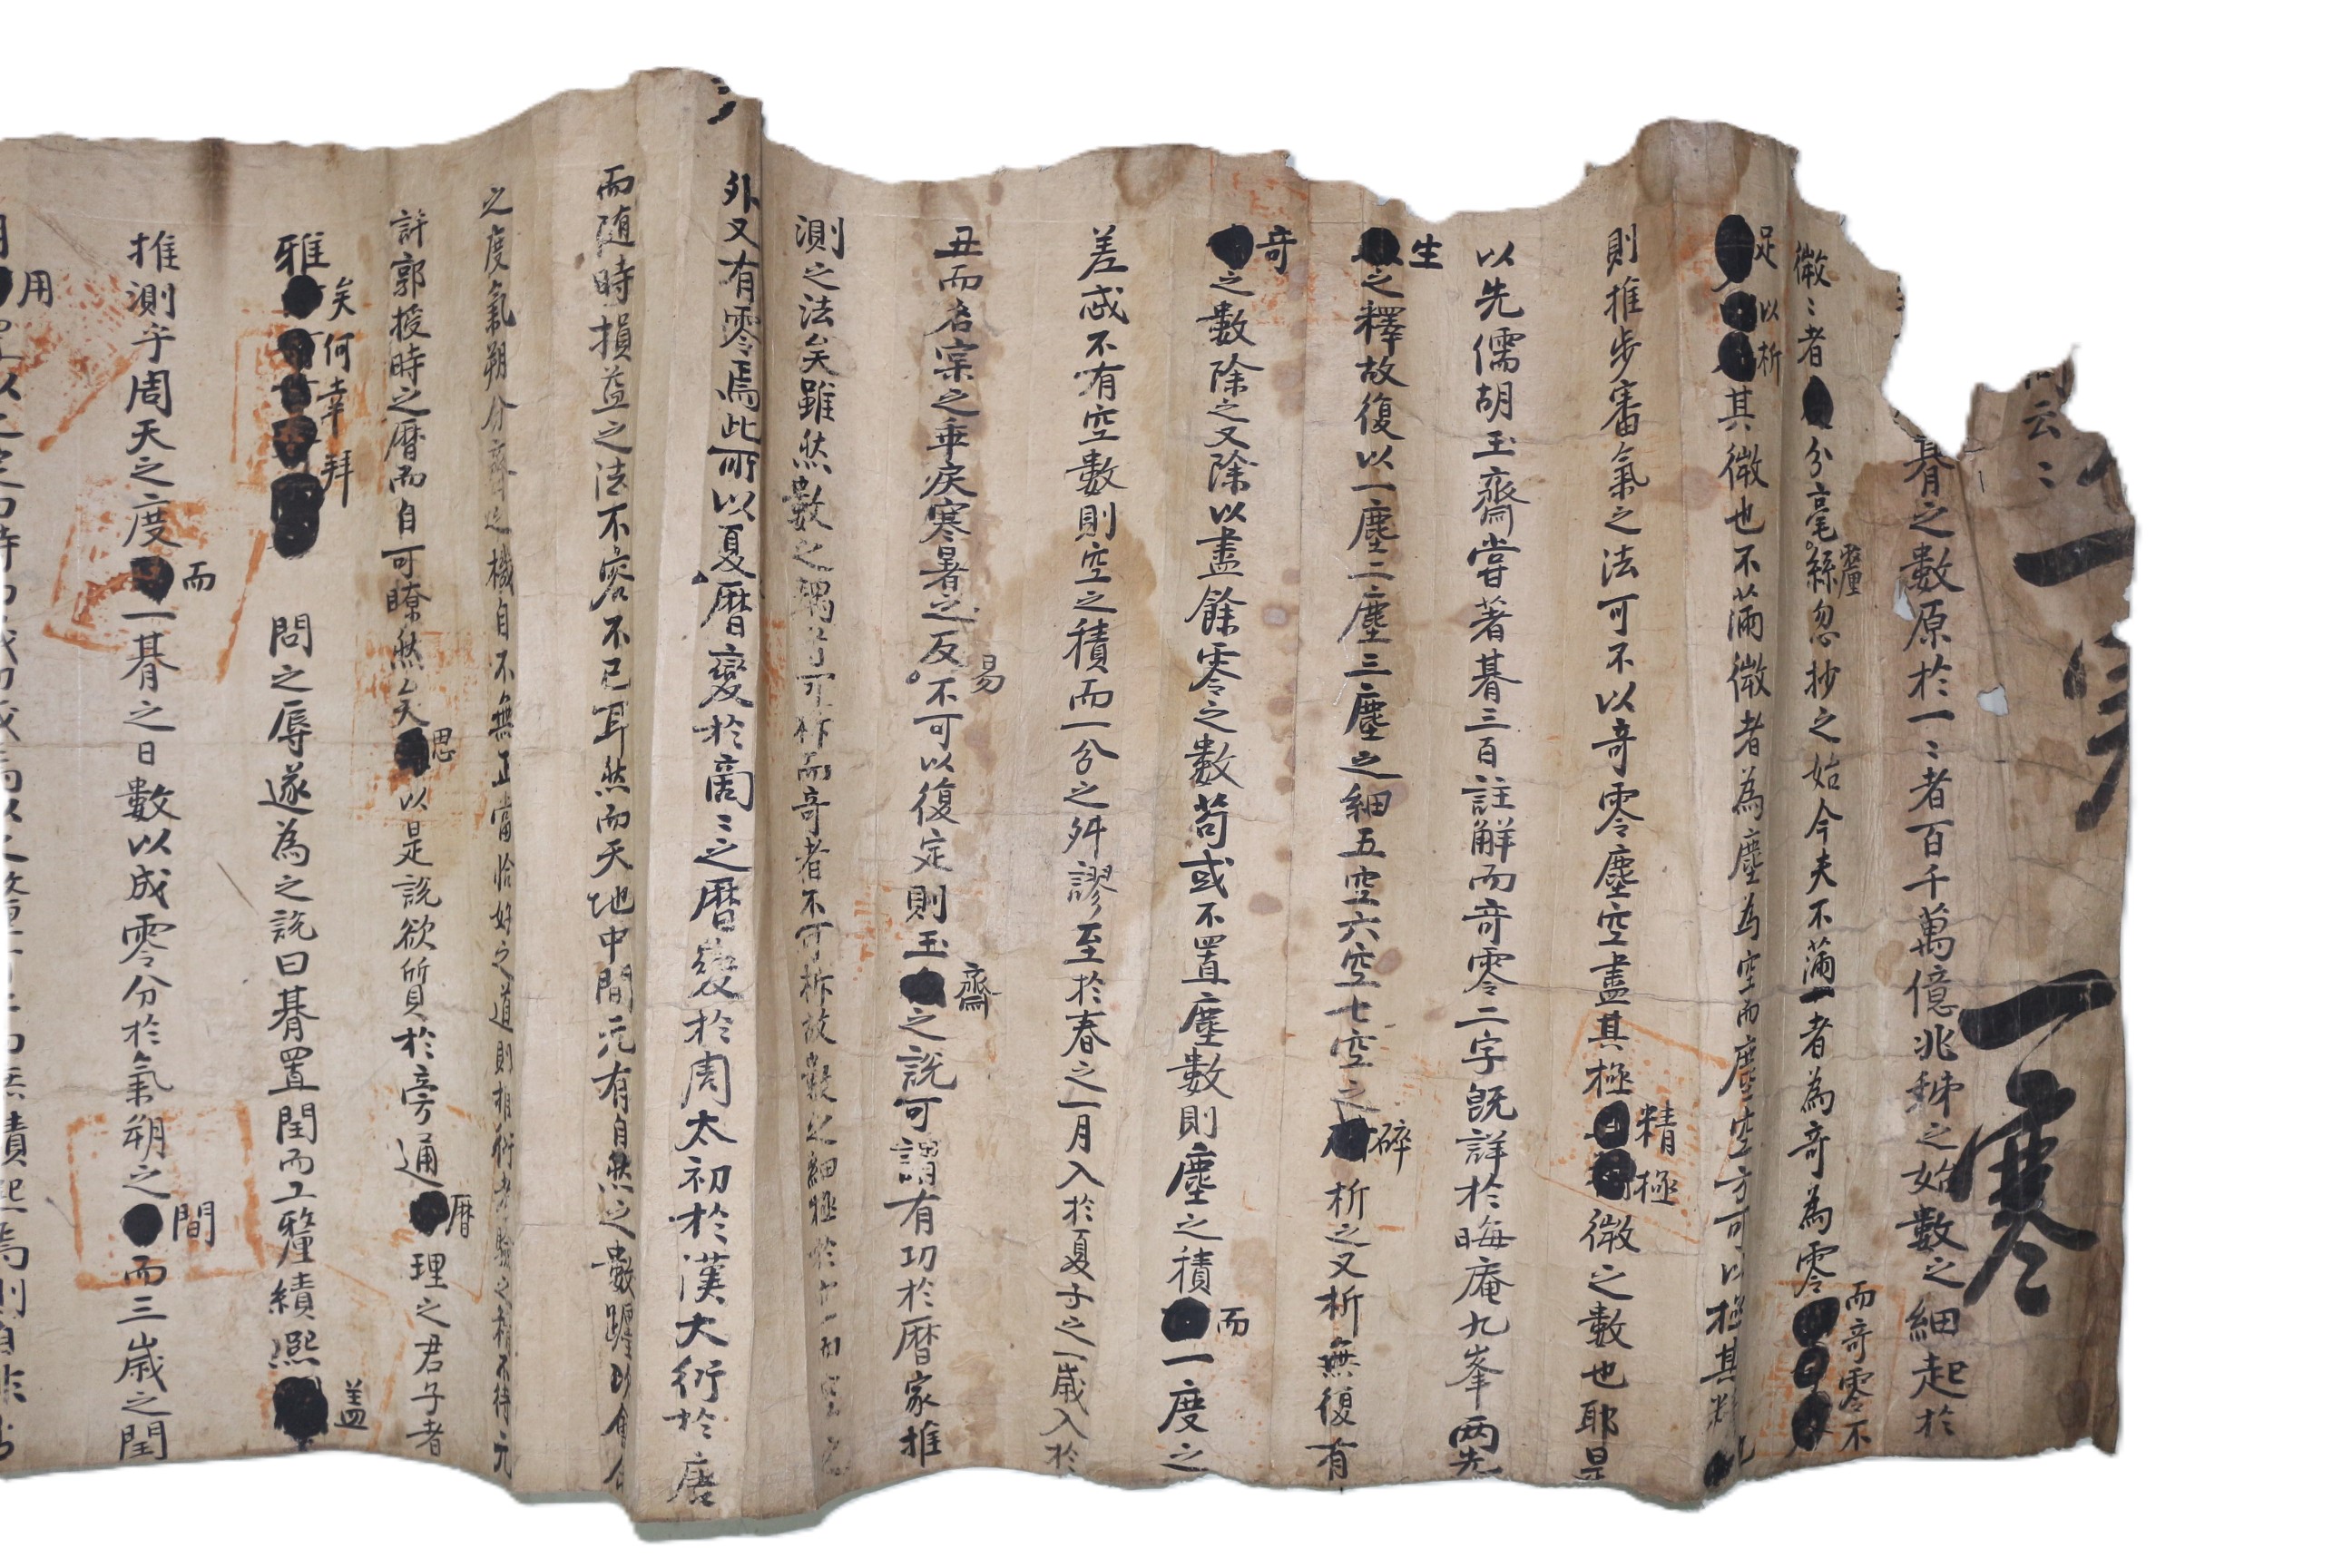 一寒
云〻
朞之數原於一〻者百千萬億兆秭之始數之細起於
微〻者分毫釐絲忽抄之始今夫不滿一者為奇為零而奇零不
足以析其微也不滿微者為塵為空而塵空方可以極其
則推步審氣之法可不以奇零塵空盡其極精極微之數也耶是
以先儒胡玉齋甞著朞三百註解而奇零二字旣詳於晦庵九峯两先
生之釋故復以一塵二塵三塵之細五空六空七空之碎析之又析無復有
奇之數除之又除以盡餘零之數苟或不置塵數則塵之積而一度之
差忒不有空數則空之積而一分之舛謬至於春之一月入於夏子之一歲入於
丑而名宲之乖戾寒暑之反易不可以復定則玉齋之說可謂有功於曆家推
測之法矣雖然數之耦者可作而奇者不可析故數之細極於
外又有零焉此所以夏曆變於商〻之曆變於周太初於漢大衍於唐
而随時損益之法不容不已耳然而天地中間元有自然之數躔以會
之度氣朔分齊之機自不無正當恰好之道則相衍考驗之精不待元
許郭授時之曆而自可瞭然矣思以是說欲質於旁通曆理之君子者
雅矣何幸拜問之辱遂為之說曰朞置閏而工釐績熙盖
推測乎周天之度而一朞之日數以成零分於氣朔之間而三歲之閏
用